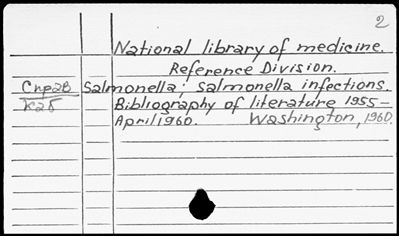 2
National library of medicine.
Reference Division.
Salmonella; salmonella infections.
Bibliography of literature 1955-
April 1960. Washington, 1960.